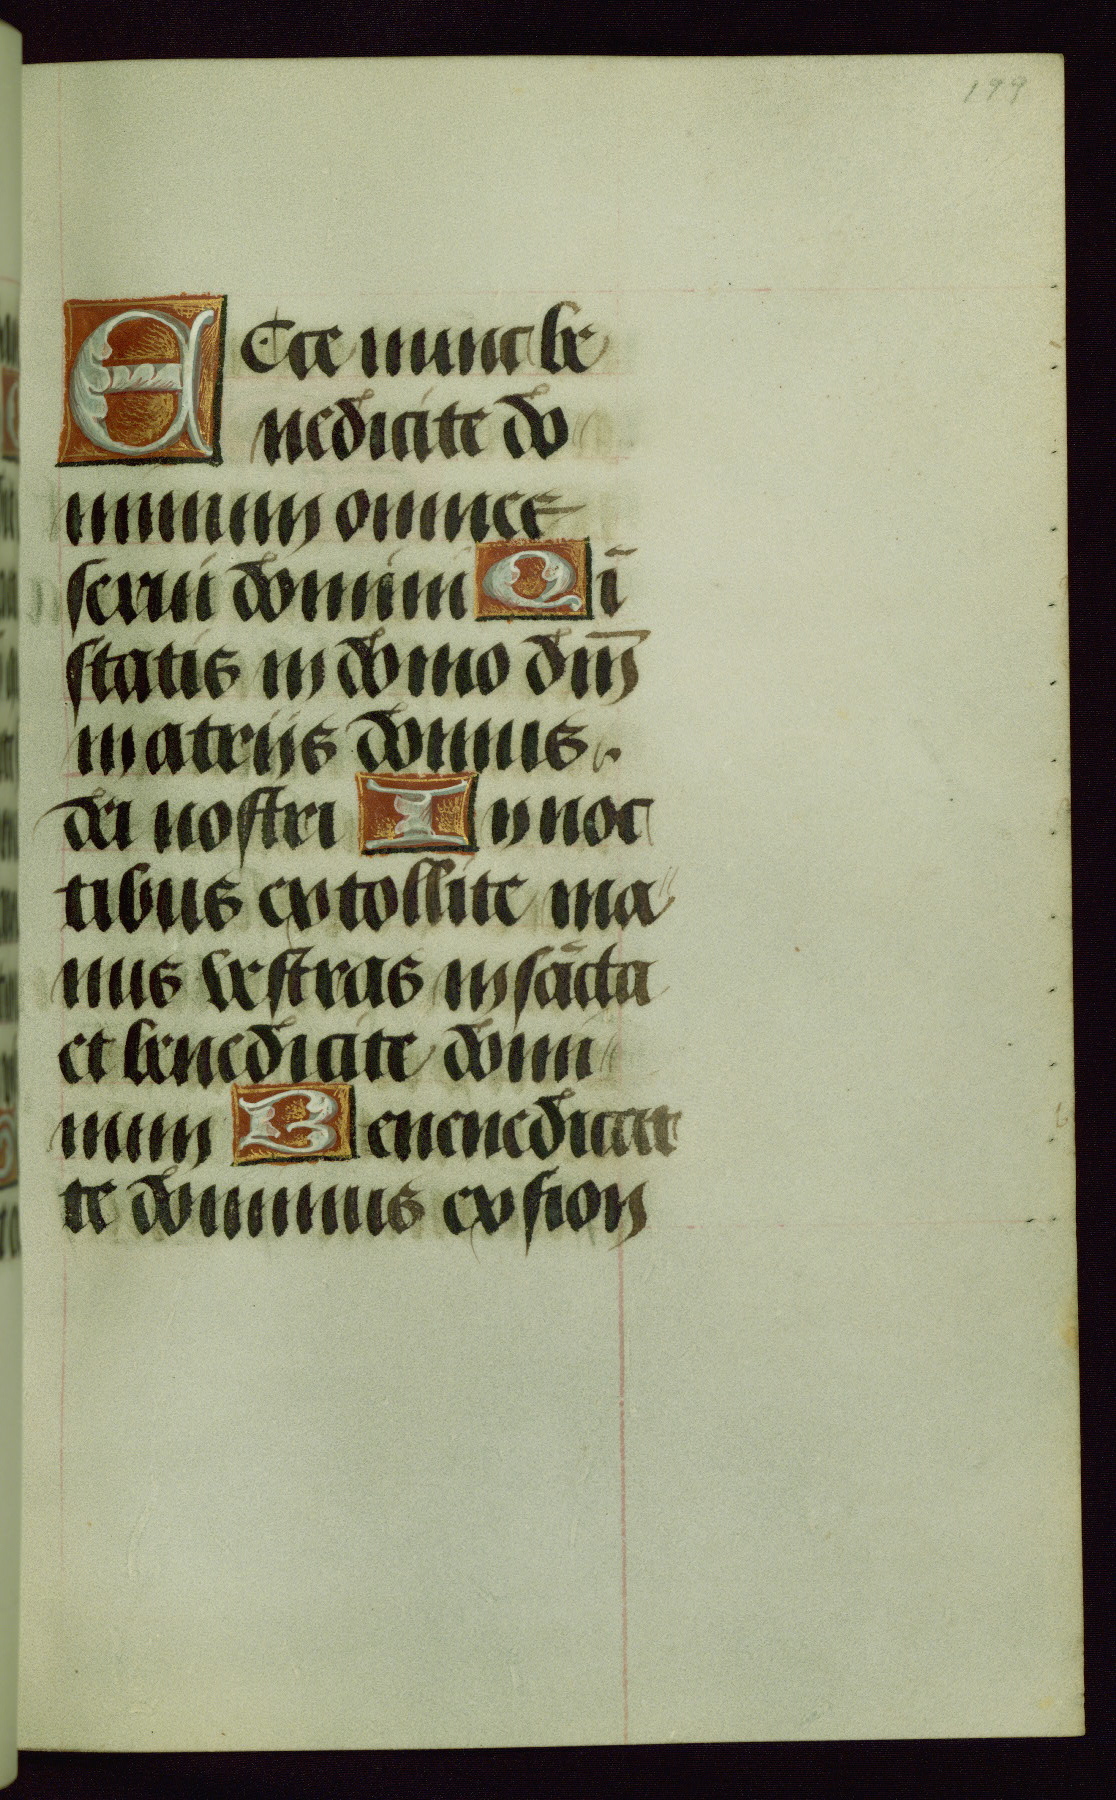 199
ECce nunc be
nedicite do
minum omnes
serui domini Qi
statis in domo dm̄
in atriis domus
dei nostri In noc
tibus extollite ma
nus vestras in sācta
et benedicite domi
num Benenedicat
te dominus ex sion